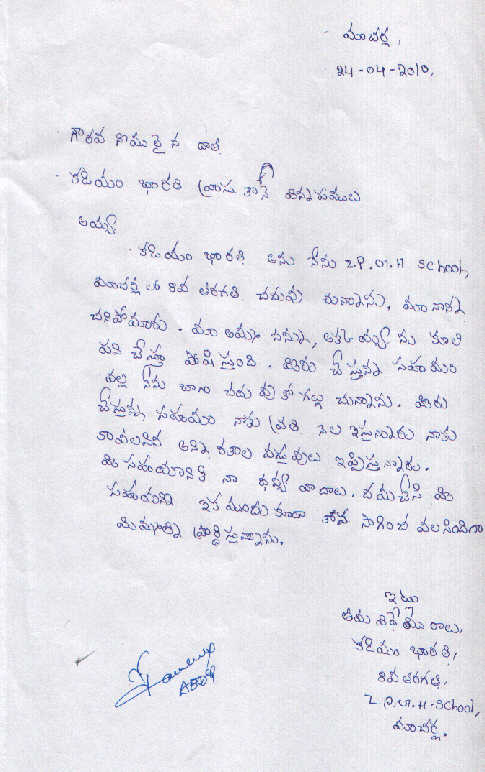 మాచర్ల,
24-04-2010.
గౌరవ నీయులైన దాత
కడియం భారతి వ్రాసు కొనే విన్నపములు
అయ్యా
కడియం భారతి అను నేను Z.P.G.H School,
మాచర్ల లో 8వ తరగతి చదువు చున్నాను. మా నాన్న
చనిపోయారు. మా అమ్మ నన్ను, అక్కయ్య ను కూలి
పని చేస్తూ పోషిస్తుంది. మీరు చేస్తున్న సహాయం
వల్ల నేను బాగా చదువుకో గల్గుచున్నాను. మీరు
చేస్తున్న సహాయం నాకు ప్రతి నెల ఇస్తున్నారు నాకు
కావలసిన అన్ని రకాల వస్తువులు ఇప్పిస్తున్నారు.
మీ సహాయానికి నా ధన్య వాదాలు. దయచేసి మీ
సహాయాన్ని ఇక ముందు కూడా కొన సాగించ వలసిందిగా
మిమ్మల్ని ప్రార్థిస్తున్నాను.
ఇట్లు
తమ విధేయు రాలు,
కడియం భారతి,
8వ తరగతి,
Z.P.G.H-School,
మాచర్ల.